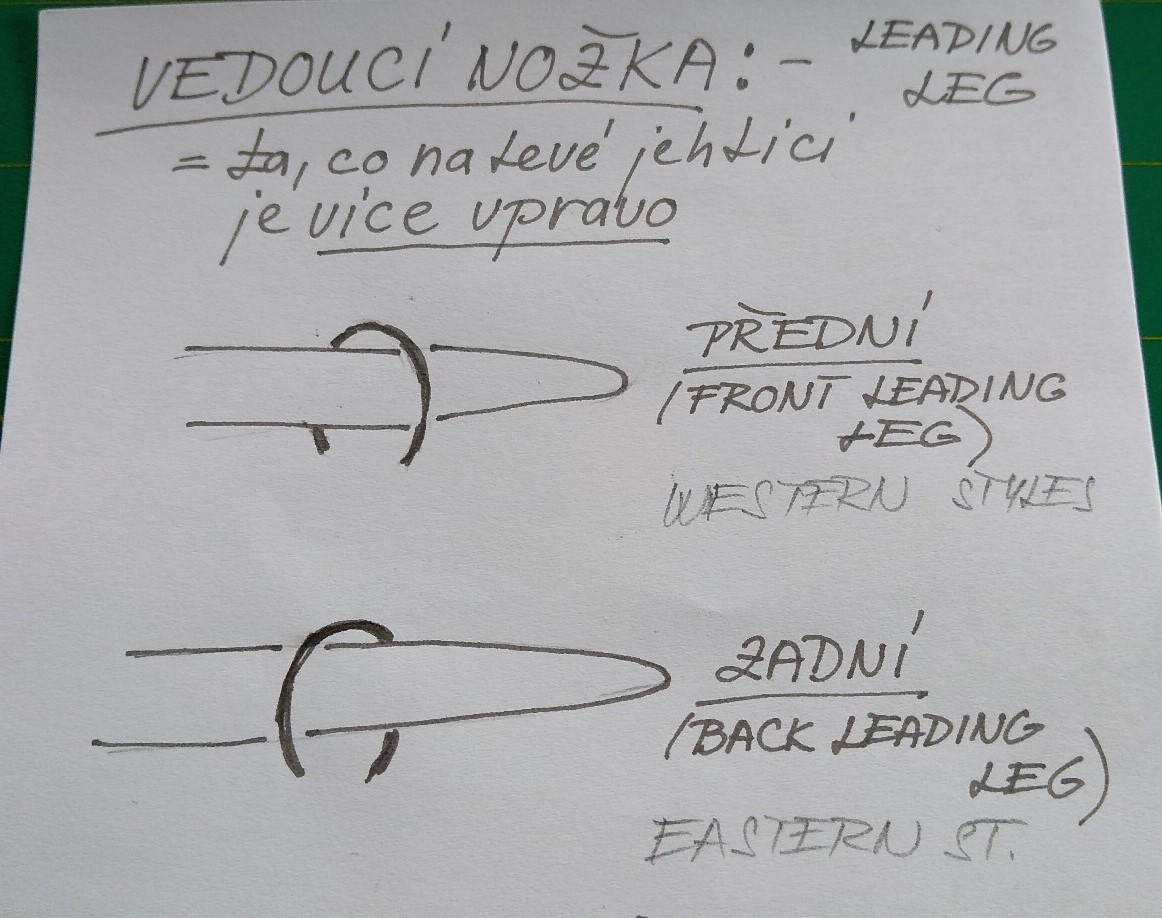 VEDOUCÍ NOŽKA: - LEADING
LEG
= ta, co na levé jehlici
je více vpravo
PŘEDNÍ
(FRONT LEADING
LEG)
WESTERN STYLES
ZADNÍ
(BACK LEADING
LEG)
EASTERN ST.